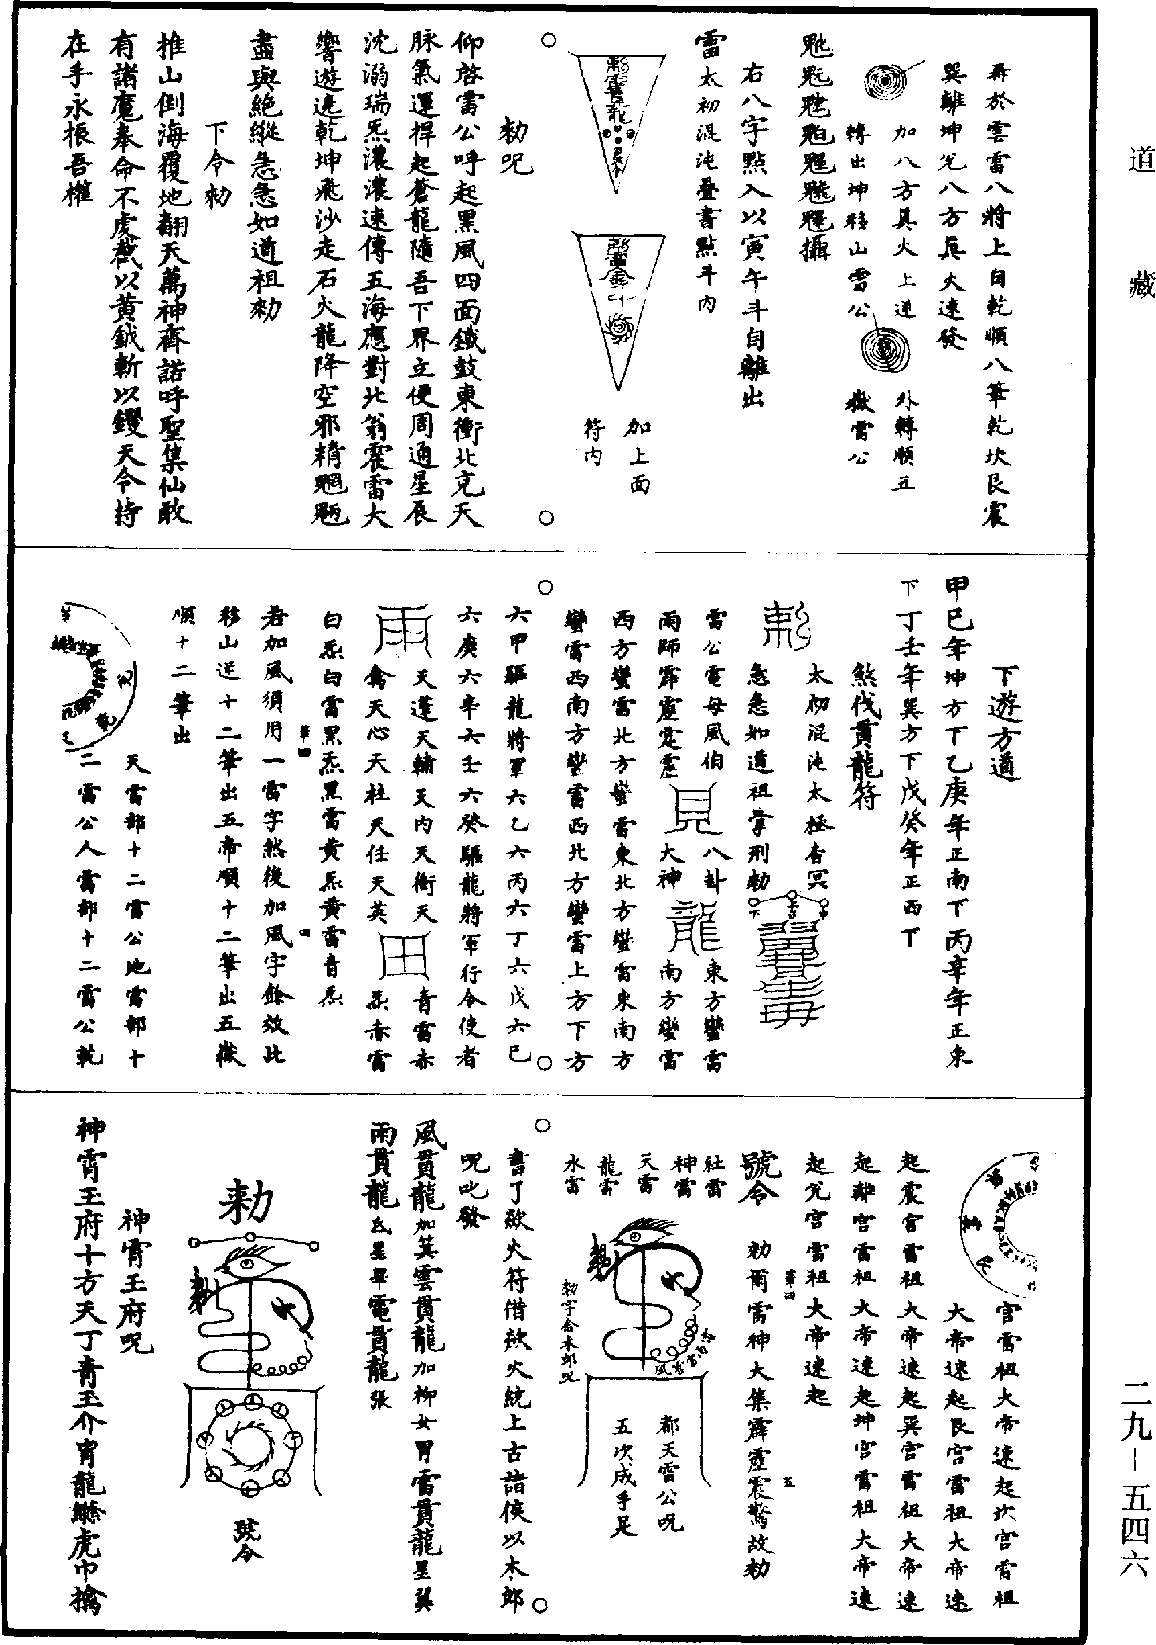 道藏
再於雲雷八將上自乾順八筆乾坎艮震
巽離坤兌八方真火速發
加八方真火上逆
轉出坤移山雷公
外轉順五
嶽雷公
攝
右八字點入以寅午斗自離出
雷太初混沌疊書點斗內
加上面
符內
勑呪
仰啓雷公呼起黑風四面鐵鼓東衝北克天
脉氣運捍起蒼龍隨吾下界立便周通星辰
沈溺瑞炁濃濃速傳五海應對北翁霍雷大
響遊遶乾坤飛沙走石火龍降空邪精魍魎
盡與絕縱急急如道祖勑
下令勑
推山倒海覆地翻天萬神齊諾呼聖集仙敢
有諸魔奉命不虔截以黃鉞斬以鑊天令持
在手永振吾權
下遊方道
甲巳年坤方下乙庚年正南下丙辛年正東
下丁壬年巽方下戊癸年正西下
煞伐貫龍符
太初混沌太極杳冥
勑
急急如道祖掌刑勑
雷公電母風伯
八卦
東方蠻雷
雨師霹靂霆靂
見
大神
龍
南方蠻雷
西方蠻雷北方蠻雷東北方蠻雷東南方
蠻雷西南方蠻雷西北方蠻雷上方下方
六甲驅龍將軍六乙六丙六丁六戊六己
六庚六辛六壬六癸驅龍將軍行令使者
雨
天蓬天輔天內天衝天
禽天心天柱天任天英
田
青雷赤
炁赤雷
白炁白雷黑炁黑雷黃炁黃雷音炁
若加風須用一雷字然後加風字餘效此
移山逆十二筆出五帝順十二筆出五嶽
順十二筆出
天雷部十二雷公地雷部十
二雷公人雷部十二雷公乾
宮雷祖大帝速起坎宮雷祖
大帝速起艮宮雷祖大帝速
起震宮雷祖大帝速起巽宮雷祖大帝速
起離宮雷祖大帝速起坤宮雷祖大帝速
起兌宮雷祖大帝速起
號令
勑爾雷神大集霹靂震驚故勑
社雷
神雷
天雷
龍雷
水雷
勑字合木郎呪
都天雷公呪
五次成手足
書了歘火符借歘火統上古諸侯以木郎
呪叱發
風貫龍加箕雲貫龍加柳女胃雷貫龍星翼
雨貫龍玄星畢電貫龍張
勑
號令
神霄玉府呪
神霄玉府十方天丁青玉介胄龍幓虎巾擒
二九—五四六